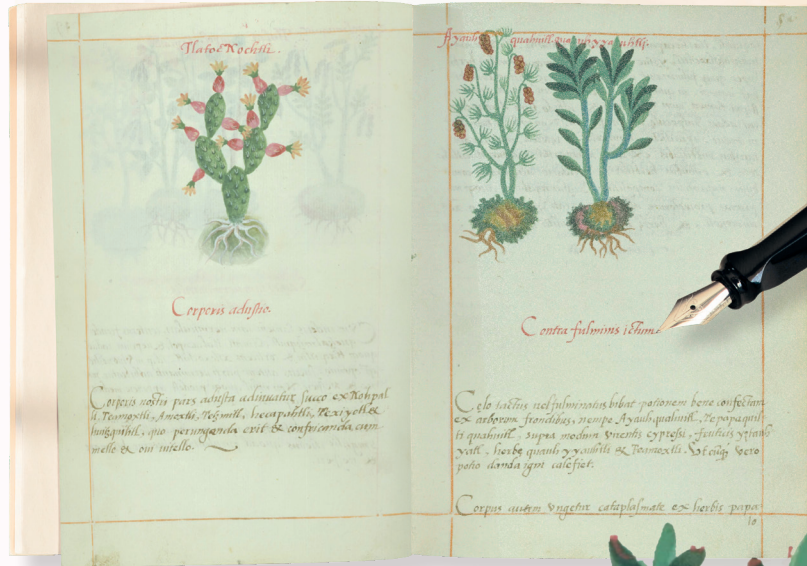 Tlatocnochtli.
Corporis adustio.
Corporis nostri pars adusta adiuvatur succo ex Nohpal
li, Teamoxtli, Amoxtli, Tetzmitl, hecapahtli, Texiyotl &
huitzquilitl, quo perungenda erit & confricanda cum
melle & oui uitello.
Ayauh quahuitl.
Contra fulminis ictum.
Celo tactus uel fulminatus bibat potionem bene confectam
ex arborum frondibus, nempe Ayauh quahuitl, Tepapaquil
ti quahuitl, supra modum uirentis cypressi, fruticis yztauh
yatl, herbę quauh yyauhtli & Teamoxtli. Vero
potio danda igni calefiet.
Corpus autem ungetur cataplasmate ex herbis papa
lo